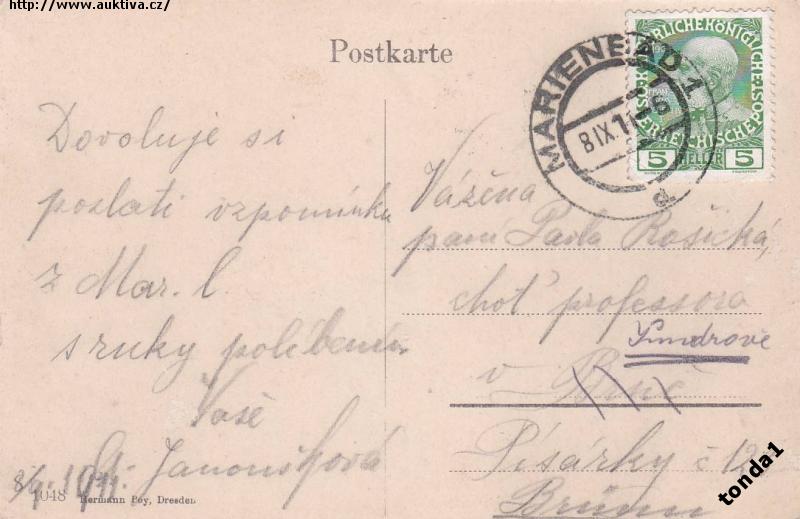 http://www.auktiva.cz/
Postkarte
MARIENBAD 1
8 IX 11
5 HELLER 5
Dovoluje si
poslati vzpomínku
z Mar. l.
s ruky políbením
Vaše
Janoušková
8/9. 1911.
Vážena
paní Pavla Rošická,
choť professora
v Brně
Pisárky č 12
Brünn
1048 Hermann Poy, Dresden.
tonda1